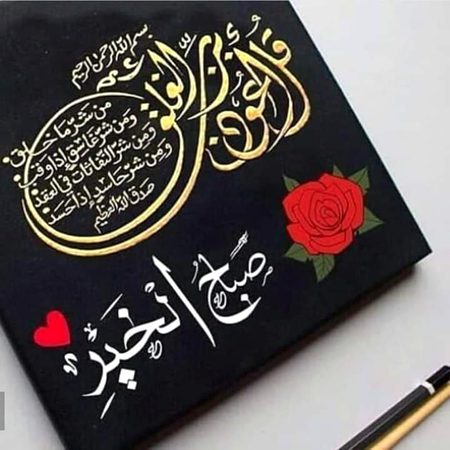 بسم الله الرحمن الرحيم
قل أعوذ برب الفلق
من شر ما خلق
ومن شر غاسق إذا وقب
ومن شر النفاثات في العقد
ومن شر حاسد إذا حسد
صدق الله العظيم
صباح الخير